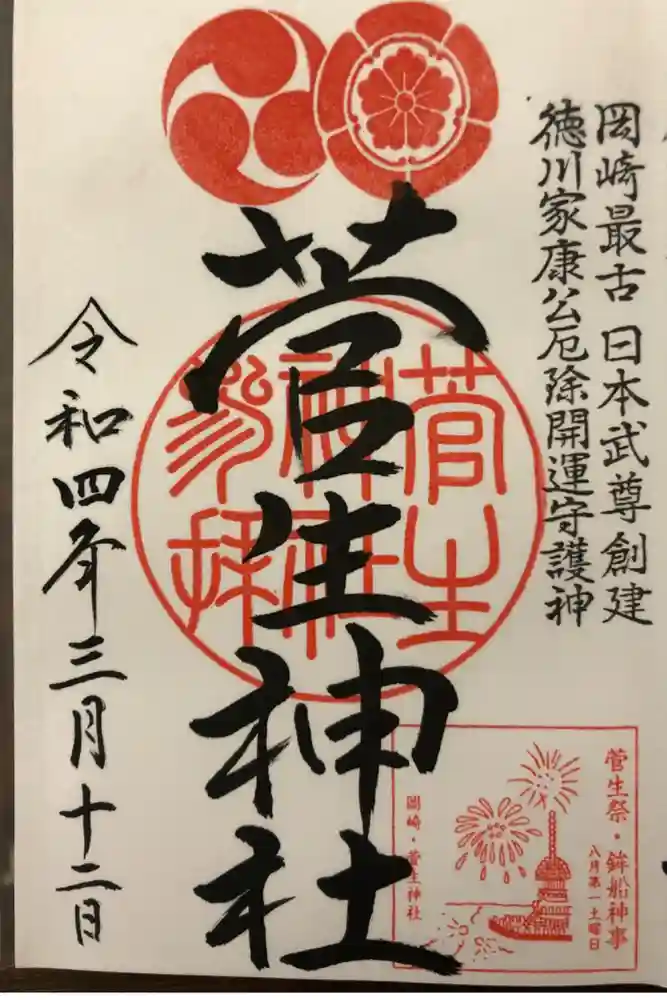 岡崎最古 日本武尊創建
徳川家康公厄除開運守護神
菅生神社
菅生
神社
参拝
令和四年三月十二日
菅生祭・鉾船神事
八月第一土曜日
岡崎・菅生神社